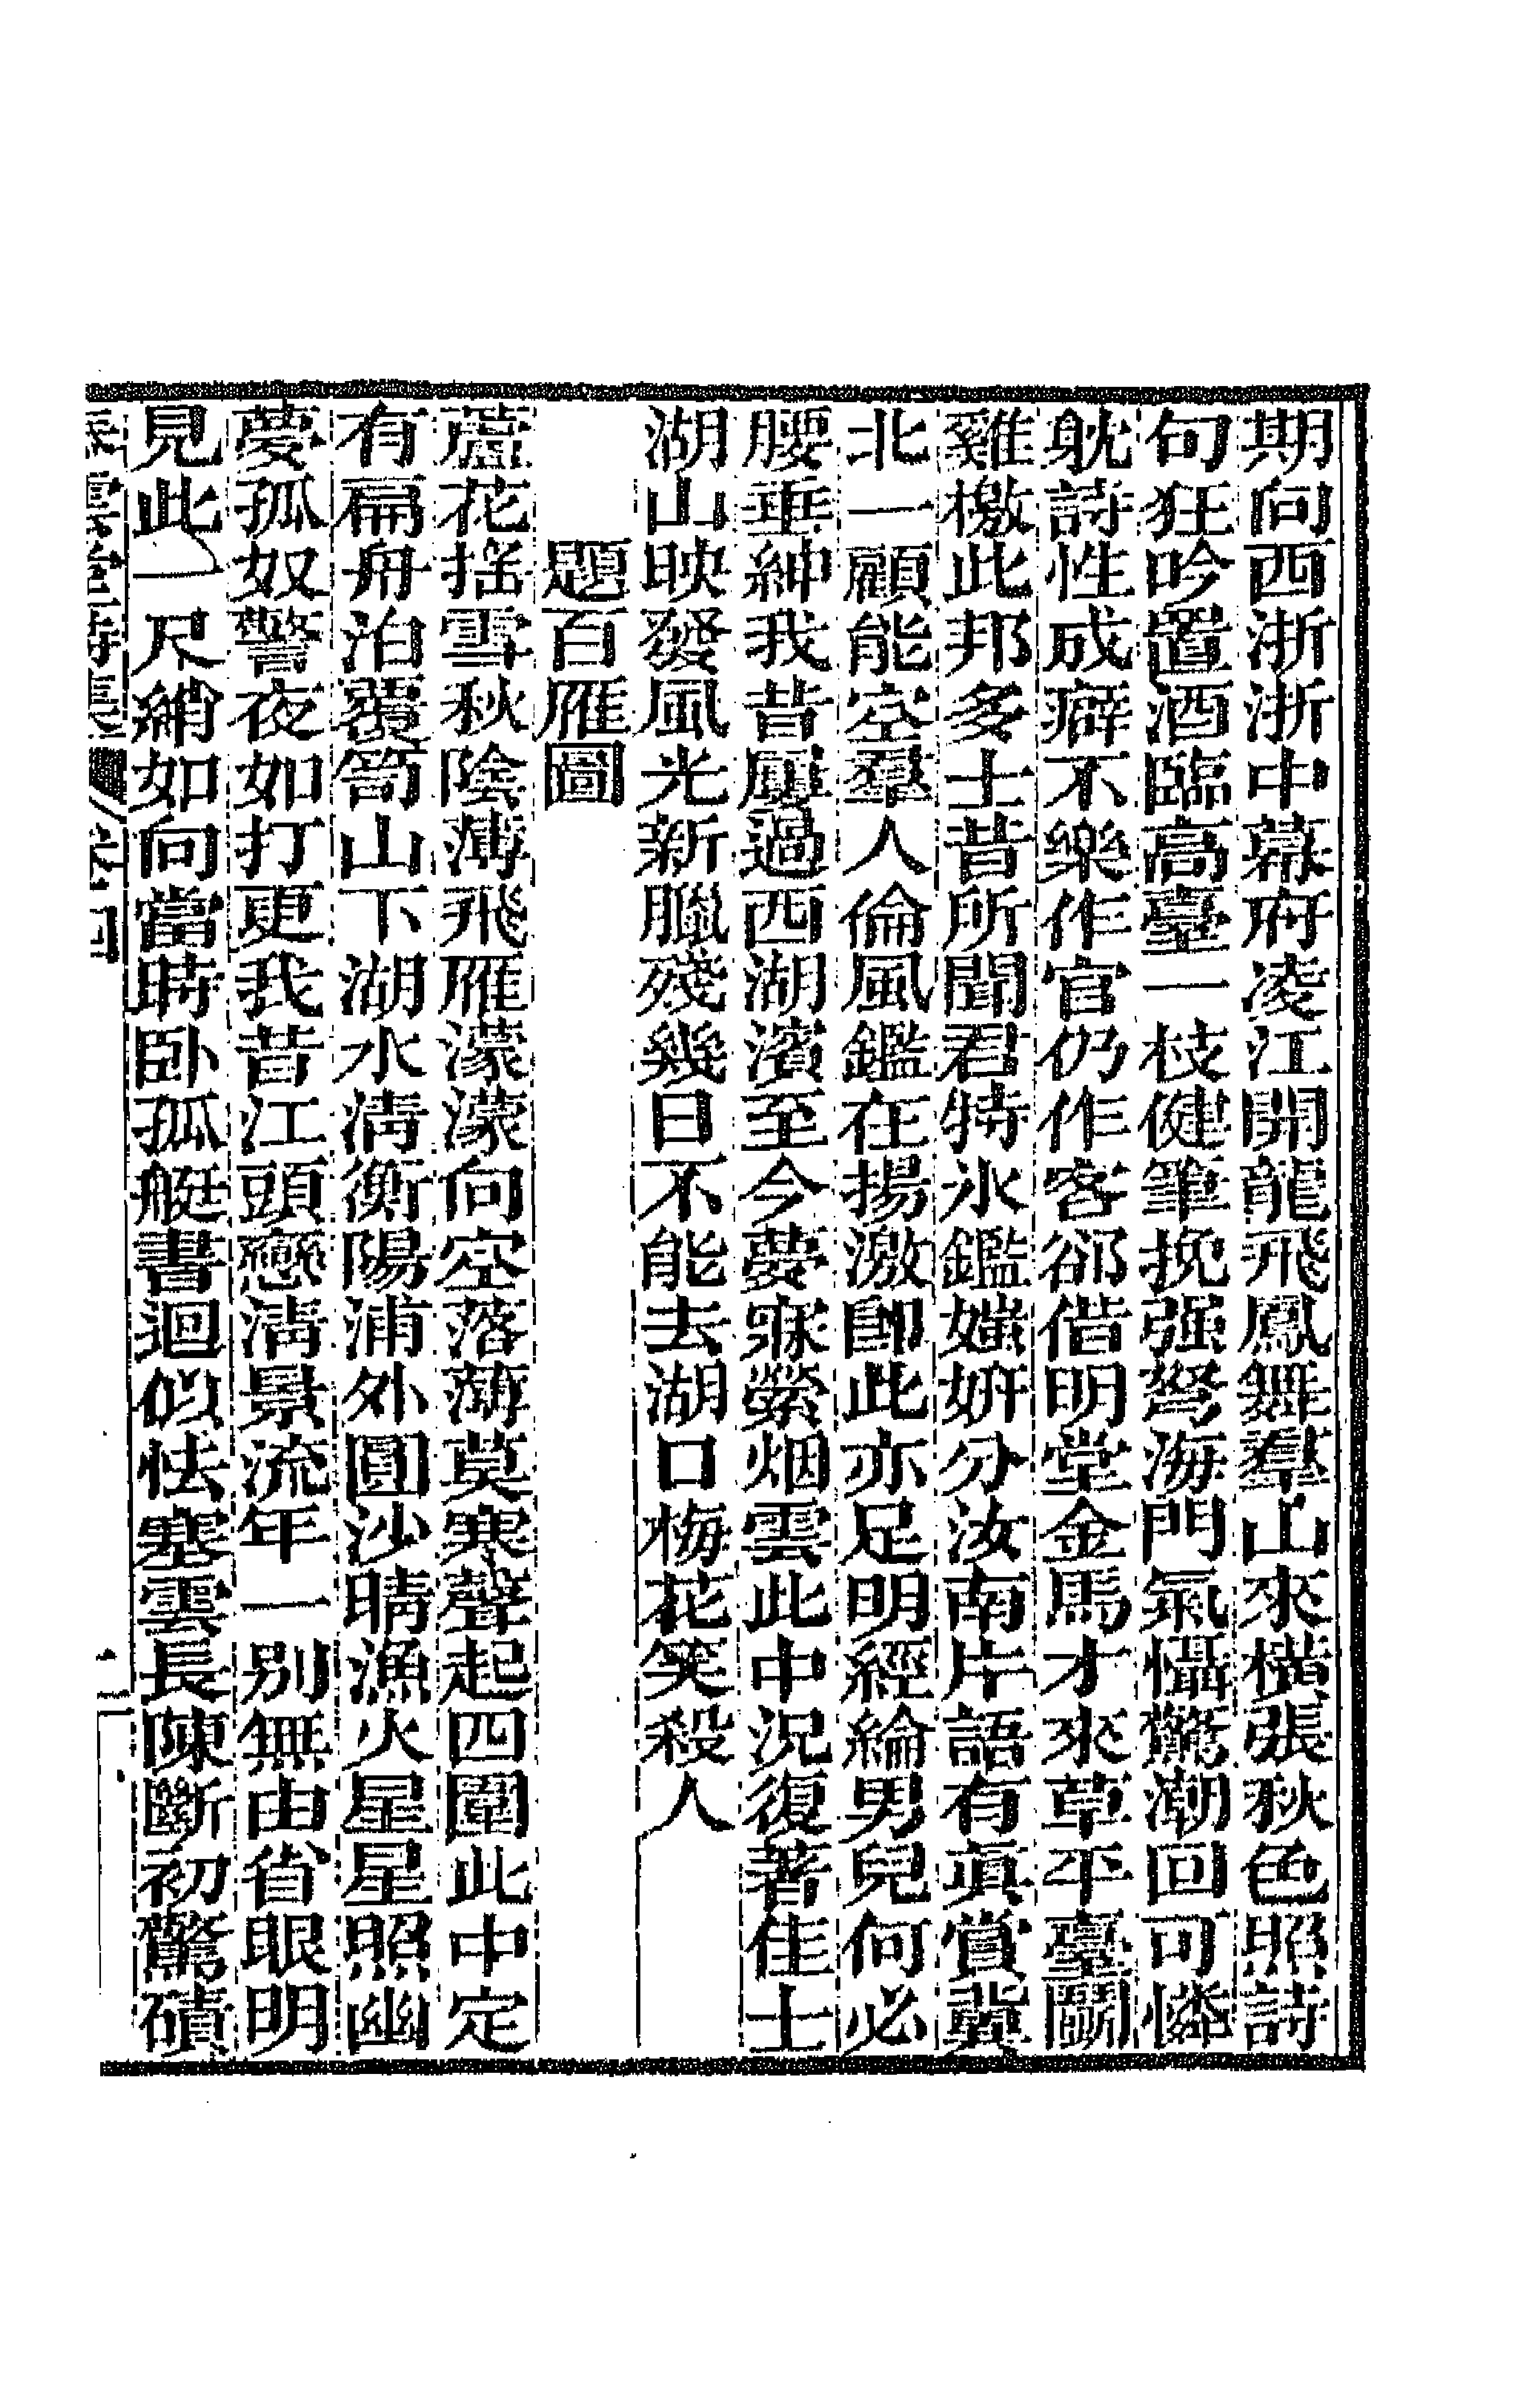 期向西浙浙中幕府凌江開龍飛鳳舞羣山來橫張秋色照詩
句狂吟置酒臨高臺一枝健筆挽强弩海門氣懾驚潮回可憐
躭詩性成癖不樂作官仍作客郤借明堂金馬才來草平臺鬭
雞檄此邦多士昔所聞君特氷鑑媸妍分汝南片語有眞賞冀
北一顧能空羣人倫風鑑在揚激卽此亦足明經綸男兒何必
腰垂紳我昔屢過西湖濱至今夢寐縈烟雲此中況復著佳士
湖山映發風光新臘殘幾日不能去湖口梅花笑殺人
題百雁圖
蘆花揺雪秋陰薄飛雁濛濛向空落蒲莫寒聲起四圍此中定
有扁舟泊覆笥山下湖水淸衡陽浦外圓沙晴漁火星星照幽
夢孤奴警夜如打更我昔江頭戀淸景流年一別無由省眼明
見此一尺綃如向當時卧孤艇書迴似怯塞雲長陳斷初驚磧
雲堂詩集 卷四 二